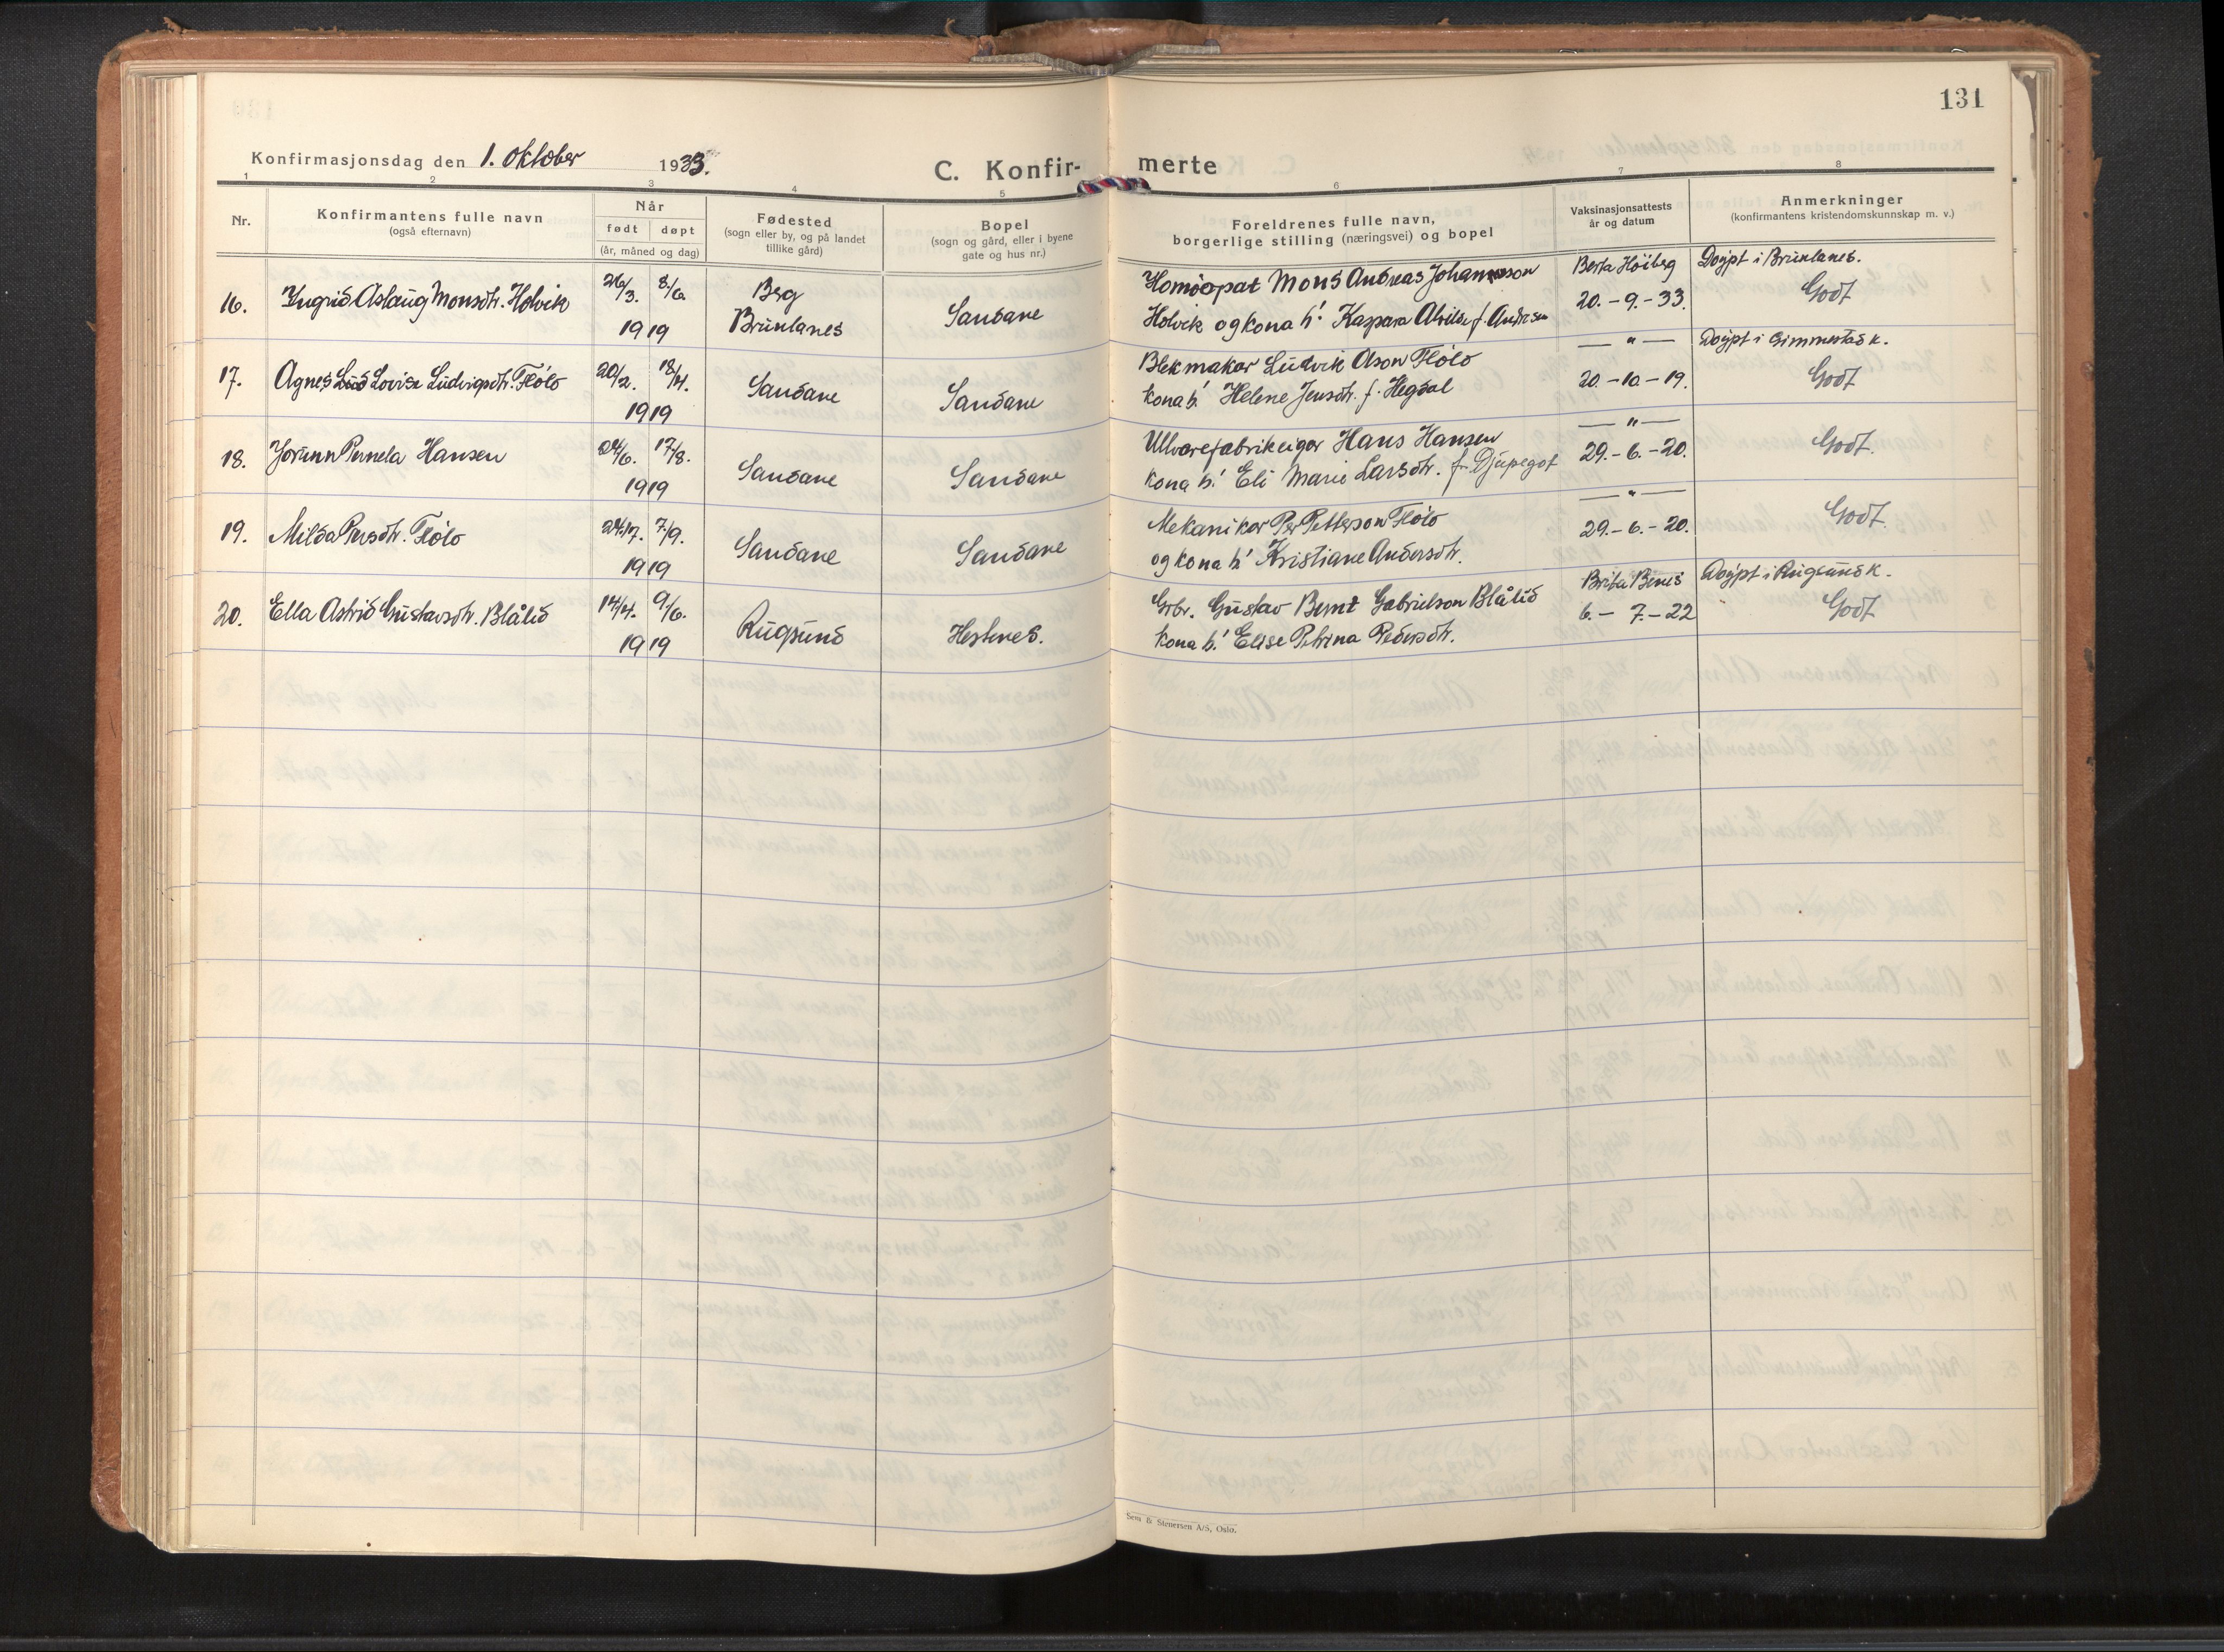 131
Konfirmasjonsdag den 1. oktober 1933.
C. Konfir- merte
1 2 3 4 5 6 7 8
Nr.
Konfirmantens fulle navn
(også efternavn)
Når
født døpt
(år, måned og dag)
Fødested
(sogn eller by, og på landet
tillike gård)
Bopel
(sogn og gård, eller i byene
gate og hus nr.)
Foreldrenes fulle navn,
borgerlige stilling (næringsvei) og bopel
Vaksinasjonsattests
år og datum
Anmerkninger
(konfirmantens kristendomskunnskap m. v.)
16. Ingrid Aslaug Monsdtr. Holvik
26/3. 8/6.
1919
Berg
Brunlanes
Sandane
Homöopat Mons Andreas Johannson
Holvik og kona h! Kaspara Alvilde f. Andresen
Berta Höiberg
20.-9.-33.
Døypt i Brunlanes.
Godt
17. Agnes Lovise Ludvigsdtr. Flölo
20/2. 18/4.
1919
Sandane
Sandane
Blekmakar Ludvik Oson Flölo
kona h! Helene Jensdtr. f. Hegdal
— " —
20.-10.-19.
Døypt i Gimmestad k.
Godt
18. Jorunn Pernela Hansen
24/6. 17/8.
1919
Sandane
Sandane
Ullvarefabrikeigar Hans Hansen
kona h! Eli Marie Larsdtr. f. Djupegot
— " —
29.-6.-20.
Godt.
19. Milda Persdtr. Flölo
24/7. 7/9.
1919
Sandane
Sandane
Mekanikar Per Petterson Flölo
og kona h! Kristiane Andersdtr.
— " —
29.-6.-20.
Godt.
20. Ella Astrid Gustavsdtr. Blålid
14/4. 9/6.
1919
Rugsund
Hestenes.
Grbr. Gustav Bernt Gabrielson Blålid
kona h! Elise Petrina Pedersdtr.
Brita Benes
6.- 7.-22
Døypt i Rugsund k.
Godt
Sem & Stenersen A/S, Oslo.